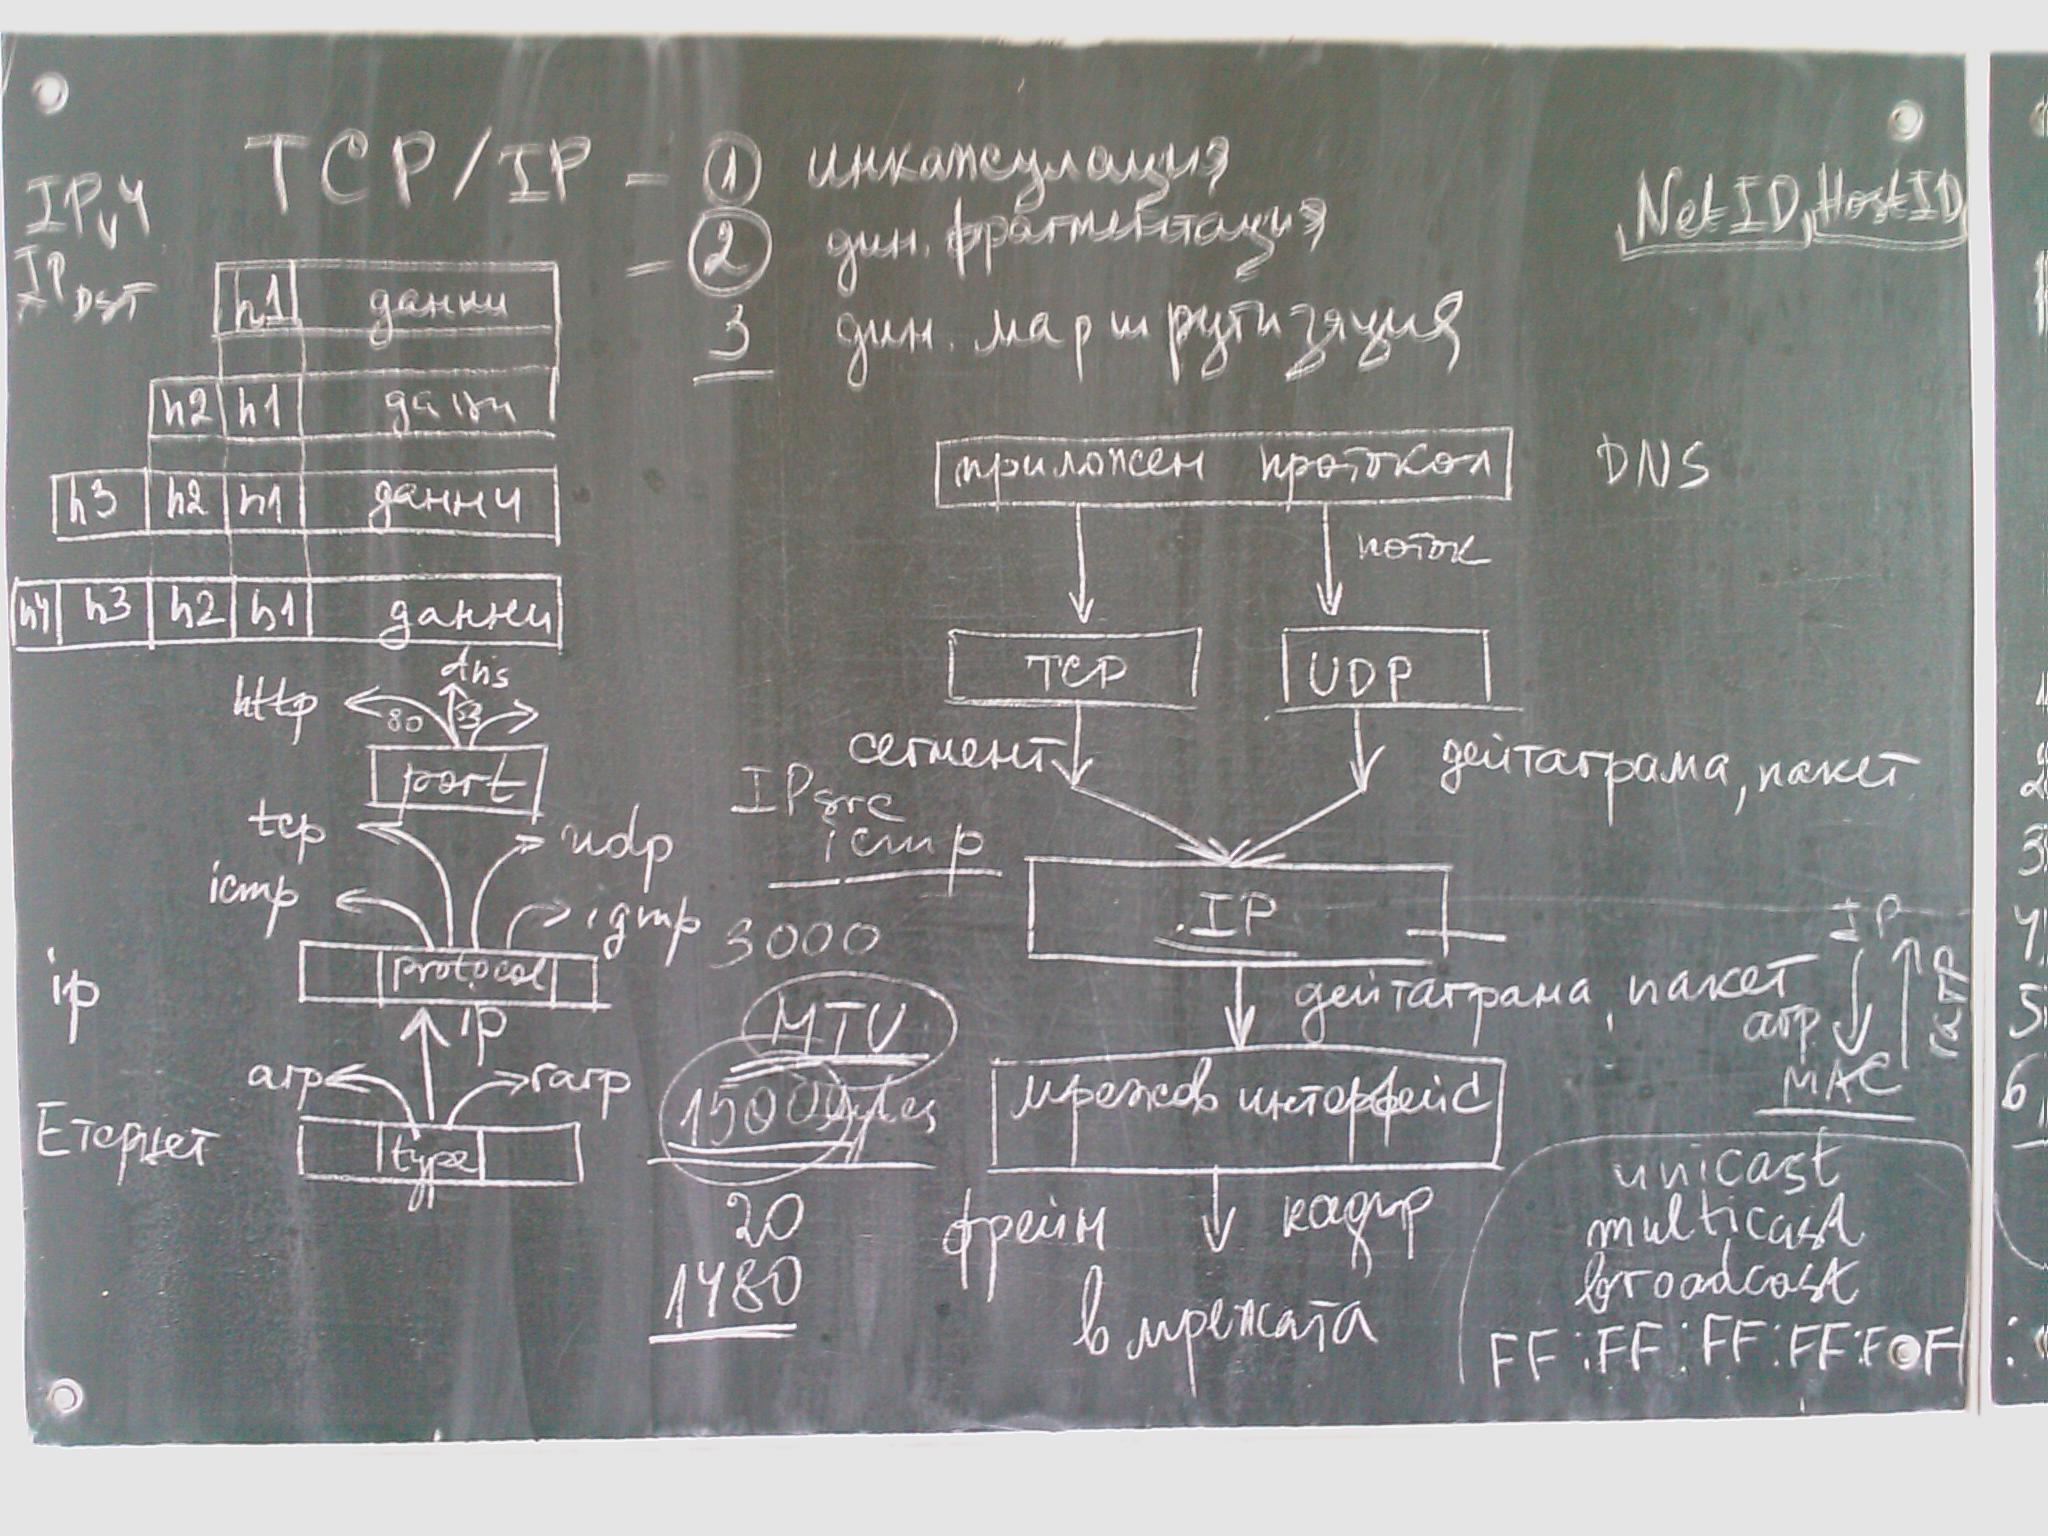 TCP/IP - ① инкапсулация
- ② дин. фрагментация
3 дин. маршрутизация
NetID, HostID
IPv4
IP DST
h1 данни
h2 h1 данни
h3 h2 h1 данни
h4 h3 h2 h1 данни
http 80 dns 53
port
tcp udp
icmp igmp
ip protocol
ip
arp rarp
Етернет type
IP src
icmp
3000
MTU
1500 bytes
20
1480
приложен протокол DNS
поток
TCP UDP
сегмент дейтаграма, пакет
IP
дейтаграма, пакет
мрежов интерфейс
фрейм кадър
в мрежата
IP
arp rarp
MAC
unicast
multicast
broadcast
FF:FF:FF:FF:F F